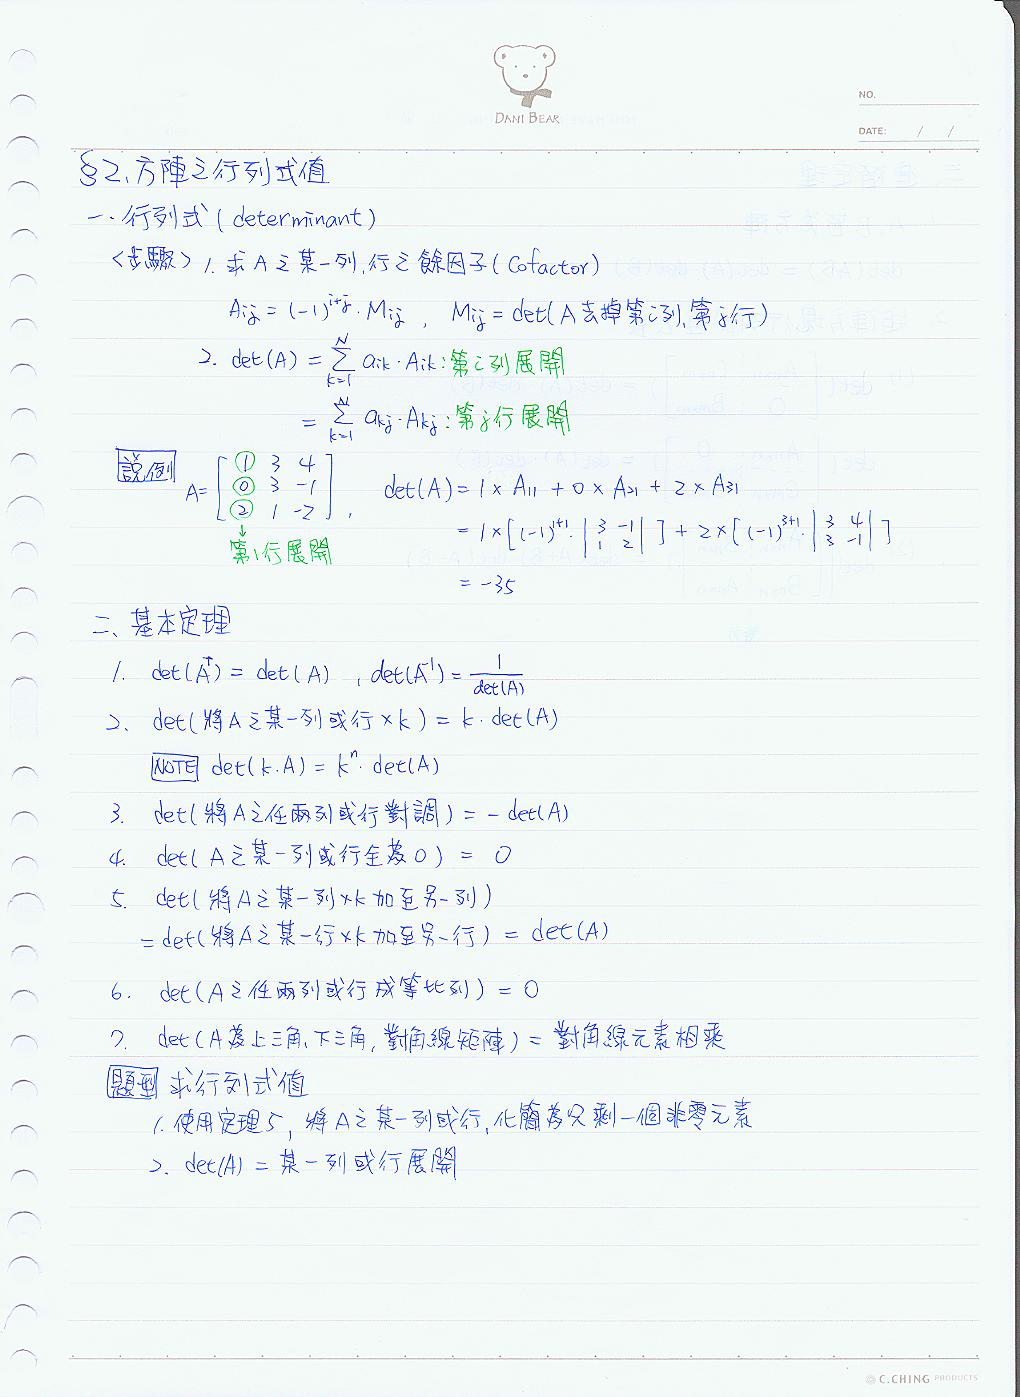 DANI BEAR
NO.
DATE: / /
§2. 方陣之行列式值
一. 行列式 (determinant)
<步驟> 1. 求A之某一列,行之餘因子(Cofactor)
Aij = (-1)^i+j · Mij , Mij = det(A去掉第i列,第j行)
2. det(A) = Σ_{k=1}^{N} aik · Aik : 第i列展開
= Σ_{k=1}^{N} akj · Akj : 第j行展開
說例 A = [1 3 4; 0 3 -1; 2 1 -2], det(A) = 1 × A11 + 0 × A21 + 2 × A31
= 1 × [(-1)^1+1 · |3 -1; 1 2|] + 2 × [(-1)^3+1 · |3 4; 3 -1|]
↓
第1行展開
= -35
二、基本定理
1. det(A^T) = det(A) , det(A^-1) = 1/det(A)
2. det(將A之某一列或行×k) = k · det(A)
NOTE det(k.A) = k^n · det(A)
3. det(將A之任兩列或行對調) = - det(A)
4. det(A之某一列或行全為0) = 0
5. det(將A之某一列×k加至另一列)
= det(將A之某一行×k加至另一行) = det(A)
6. det(A之任兩列或行成等比列) = 0
7. det(A為上三角、下三角,對角線矩陣) = 對角線元素相乘
題型 求行列式值
1. 使用定理5, 將A之某一列或行,化簡為只剩一個非零元素
2. det(A) = 某一列或行展開
C.CHING PRODUCTS